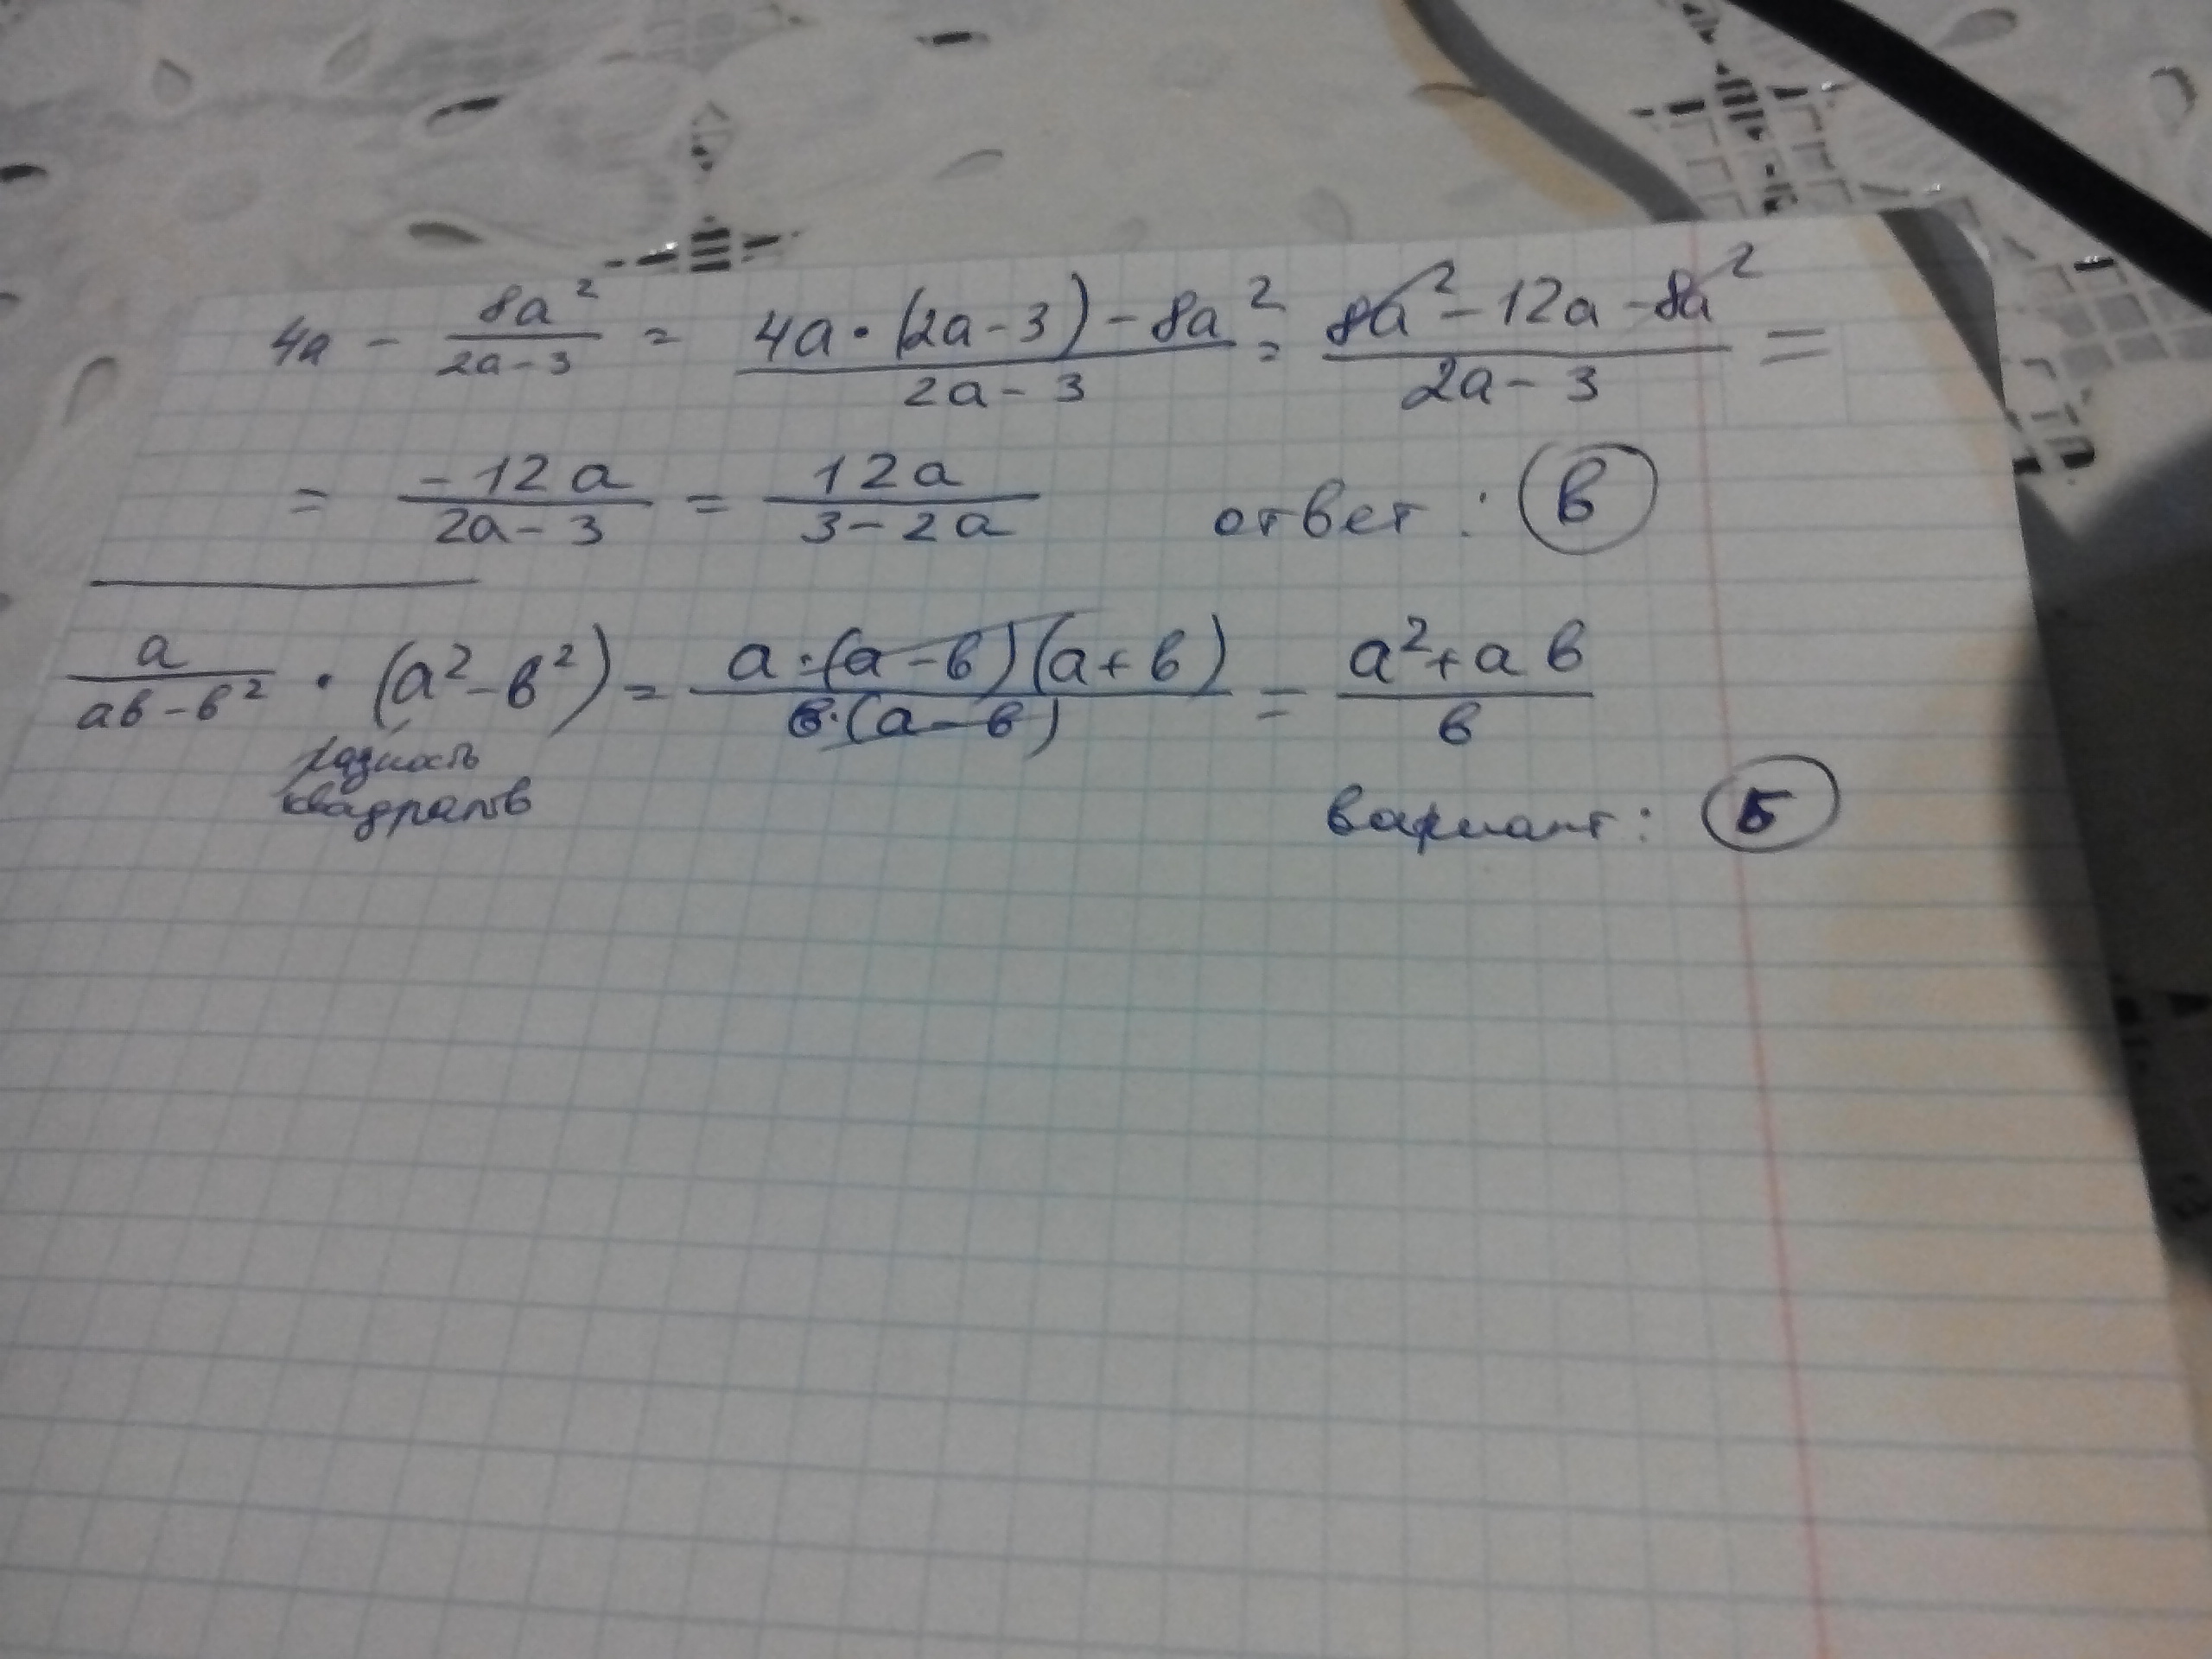 4a - 8a²/(2a-3) = (4a·(2a-3)-8a²)/(2a-3) = (8a²-12a-8a²)/(2a-3) =
= -12a/(2a-3) = 12a/(3-2a) ответ: в
a/(ab-b²) · (a²-b²) = (a·(a-b)(a+b))/(b·(a-b)) = (a²+ab)/b
разность
квадратов
вариант: Б